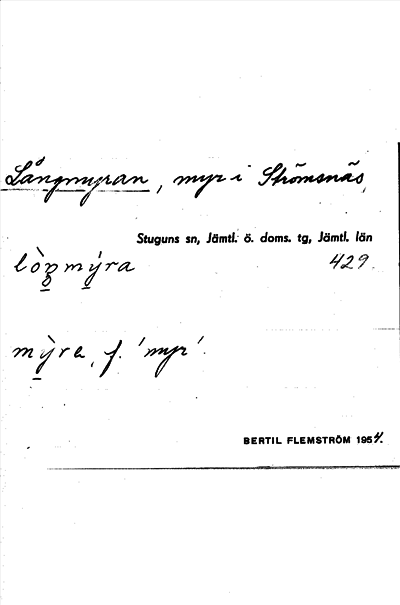 Långmyran, myr i Strömsnäs,
Stuguns sn, Jämtl. ö. doms. tg, Jämtl. län
429.
mỳra, f. 'myr'.
BERTIL FLEMSTRÖM 1954.